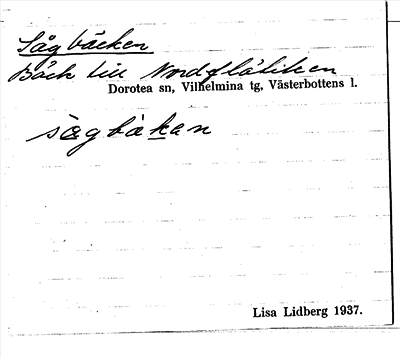 Sågbäcken
Bäck till Nordflåtiken
Dorotea sn, Vilhelmina tg, Västerbottens l.
sågbäkan
Lisa Lidberg 1937.